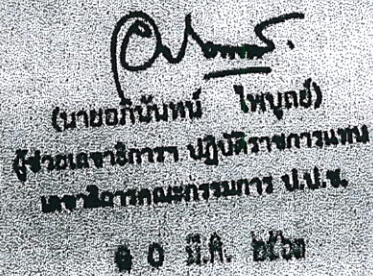 (นายอภินันทน์ ไพบูลย์)
ผู้ช่วยเลขาธิการฯ ปฏิบัติราชการแทน
เลขาธิการคณะกรรมการ ป.ป.ช.
๑๐ มี.ค.